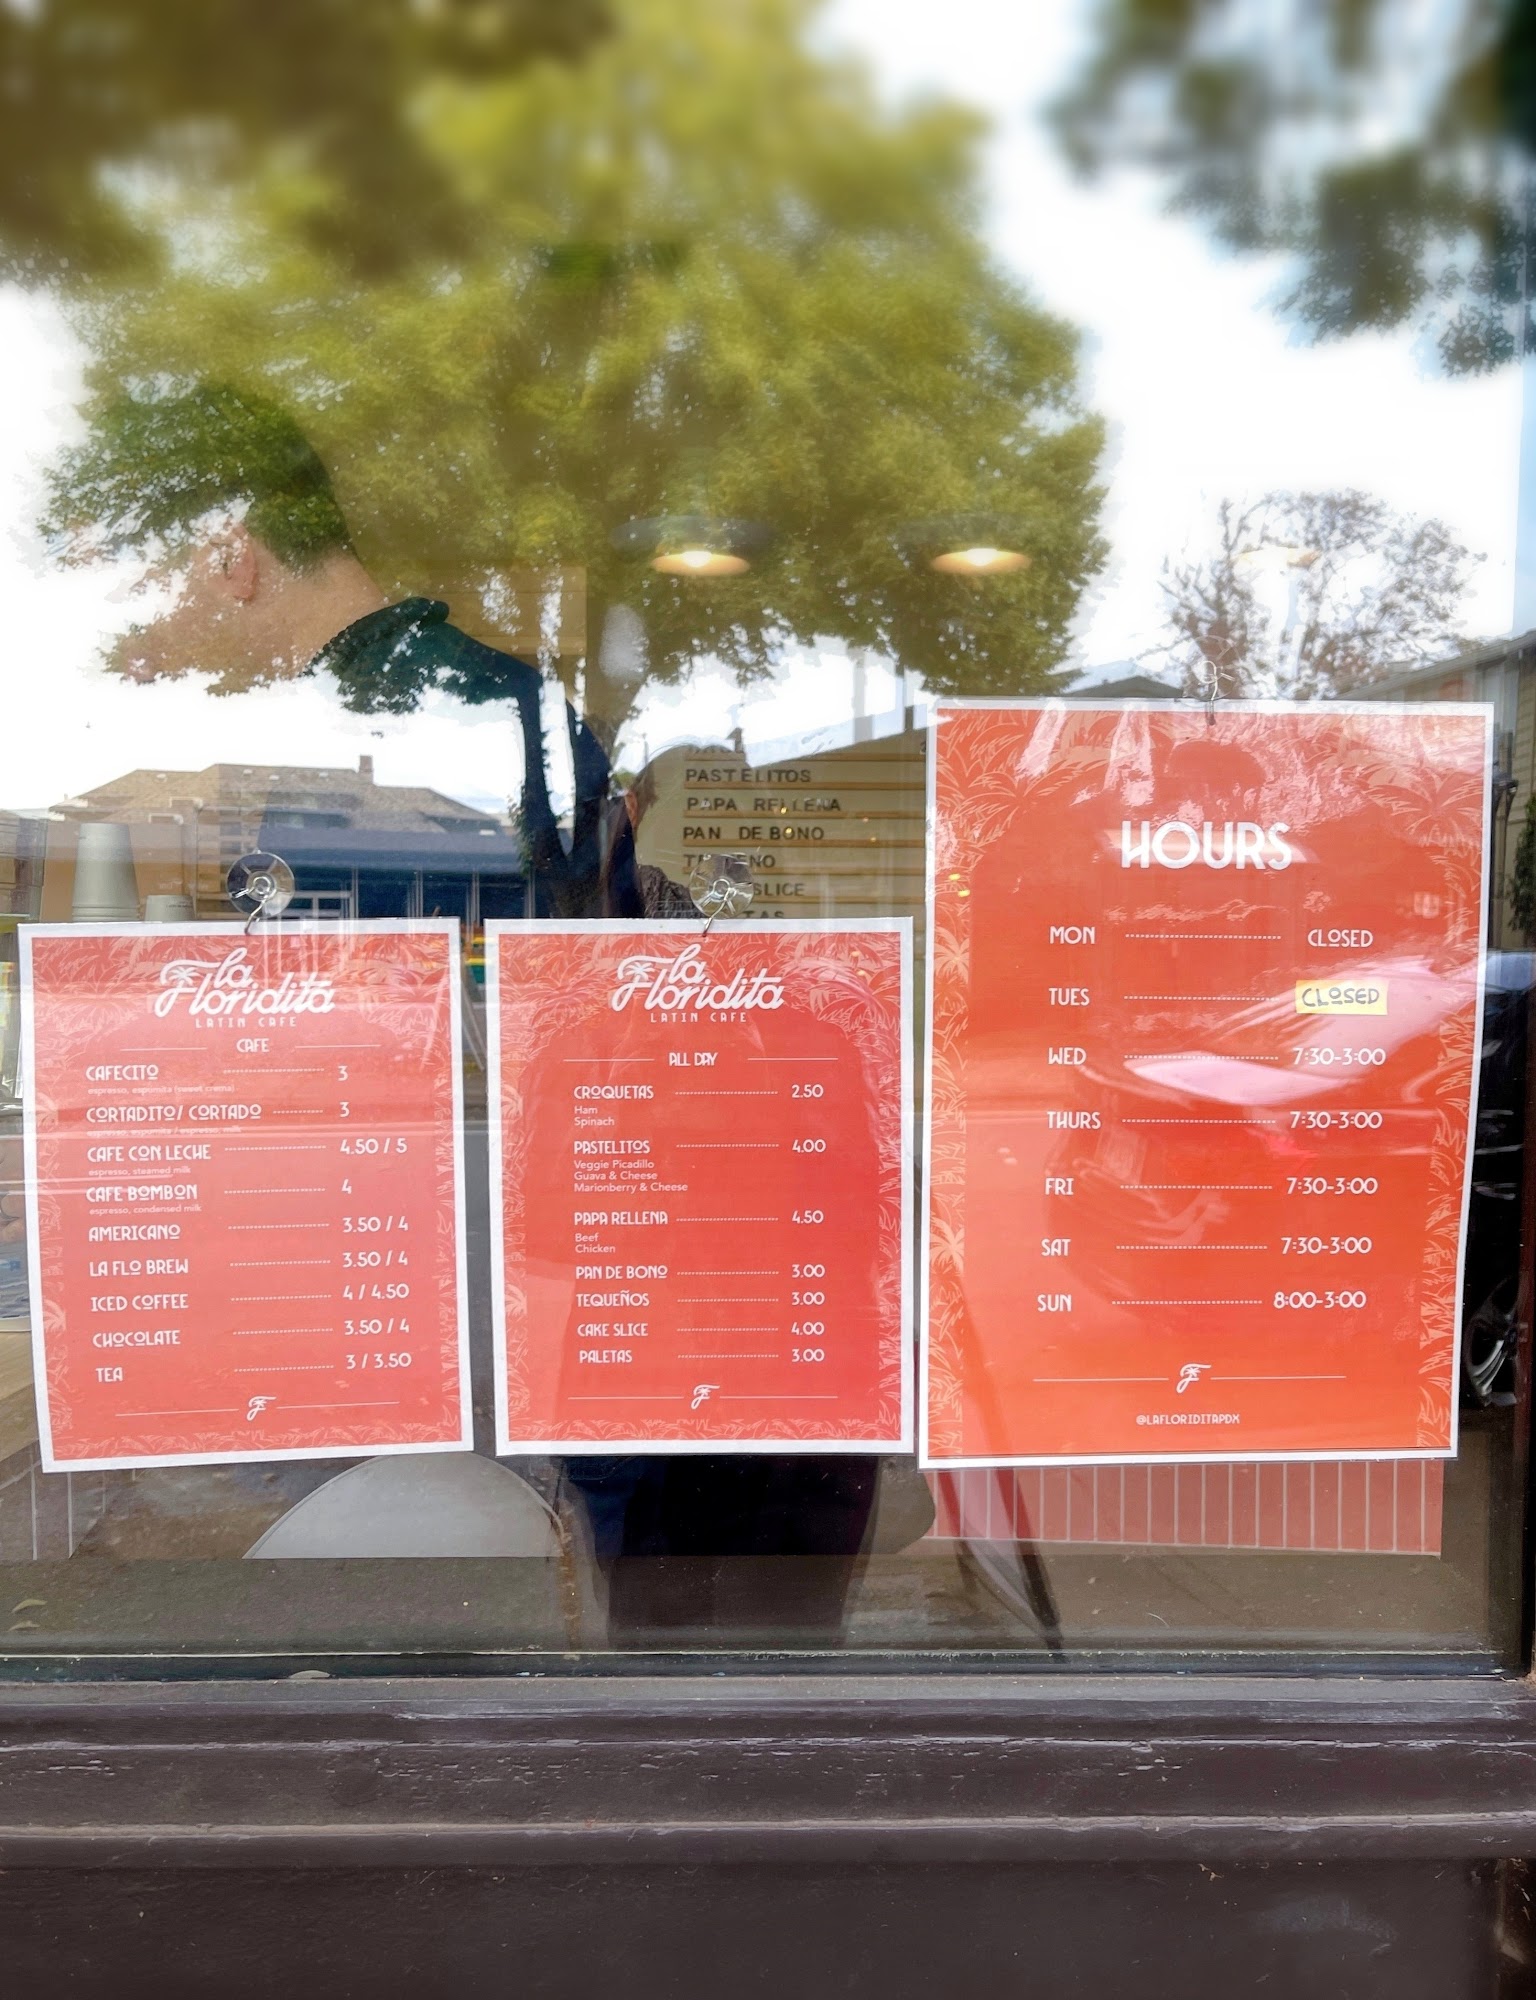 PASTELITOS
PAPA RELLENA
PAN DE BONO
SLICE
La Floridita
LATIN CAFE
CAFE
CAFECITO 3
espresso, espumita (sweet crema)
CORTADITO/ CORTADO 3
espresso, espumita / espresso, milk
CAFE CON LECHE 4.50 / 5
espresso, steamed milk
CAFE BOMBON 4
espresso, condensed milk
AMERICANO 3.50 / 4
LA FLO BREW 3.50 / 4
ICED COFFEE 4 / 4.50
CHOCOLATE 3.50 / 4
TEA 3 / 3.50
F
La Floridita
LATIN CAFE
ALL DAY
CROQUETAS 2.50
Ham
Spinach
PASTELITOS 4.00
Veggie Picadillo
Guava & Cheese
Marionberry & Cheese
PAPA RELLENA 4.50
Beef
Chicken
PAN DE BONO 3.00
TEQUEÑOS 3.00
CAKE SLICE 4.00
PALETAS 3.00
F
HOURS
MON CLOSED
TUES CLOSED
WED 7:30-3:00
THURS 7:30-3:00
FRI 7:30-3:00
SAT 7:30-3:00
SUN 8:00-3:00
F
@LAFLORIDITAPDX